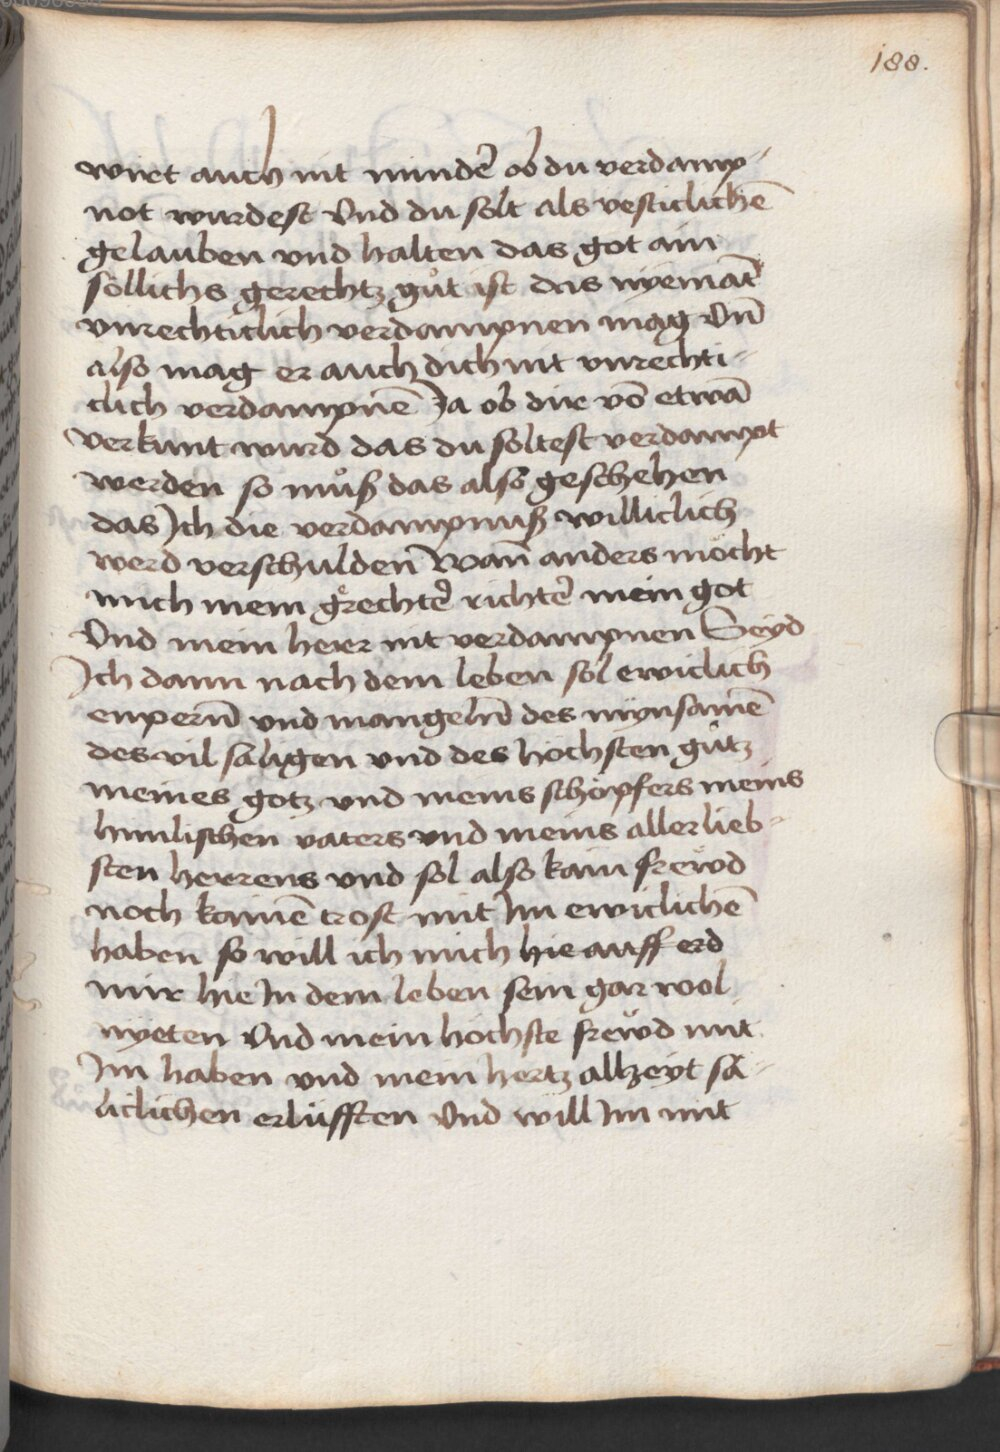 188.
wirt auch nit mindẽ ob du verdamp-
not wurdest Vnd du solt als vesticlichẽ
gelauben vnd halten das got ain
söllichs gerechtz gůt ist das nyemãt
vnrechticlich verdampnen mag Vñ
also mag er auch dich nit vnrechti-
clich verdampnẽ Ja ob dir võ etwã
verkunt wurd das du soltest verdampt
werden so můß das also geschehen
das Ich die verdampnuß williclich
werd verschulden Wañ anders möcht
mich mein grechter̃ richter̃ mein got
Vnd mein herr nit verdampnen Seyd
Ich dann nach dem leben sol ewiclich
enpern̄ vnd mangeln̄ des mynsamẽ
des vil säligen vnd des höchsten gůtz
meines gotz vnd meins schöpfers meins
himlischen vaters vnd meins allerlieb-
sten herrens vnd sol also kain frewd
noch kainẽ trost mit Im ewiclichẽ
haben so will ich mich hie auff erd
mir hie In dem leben sein gar wol
nyeten Vnd mein höchste frewd mit
Im haben vnd mein hertz allzeyt sä-
liclichen erlüfften Vnd will Im mit